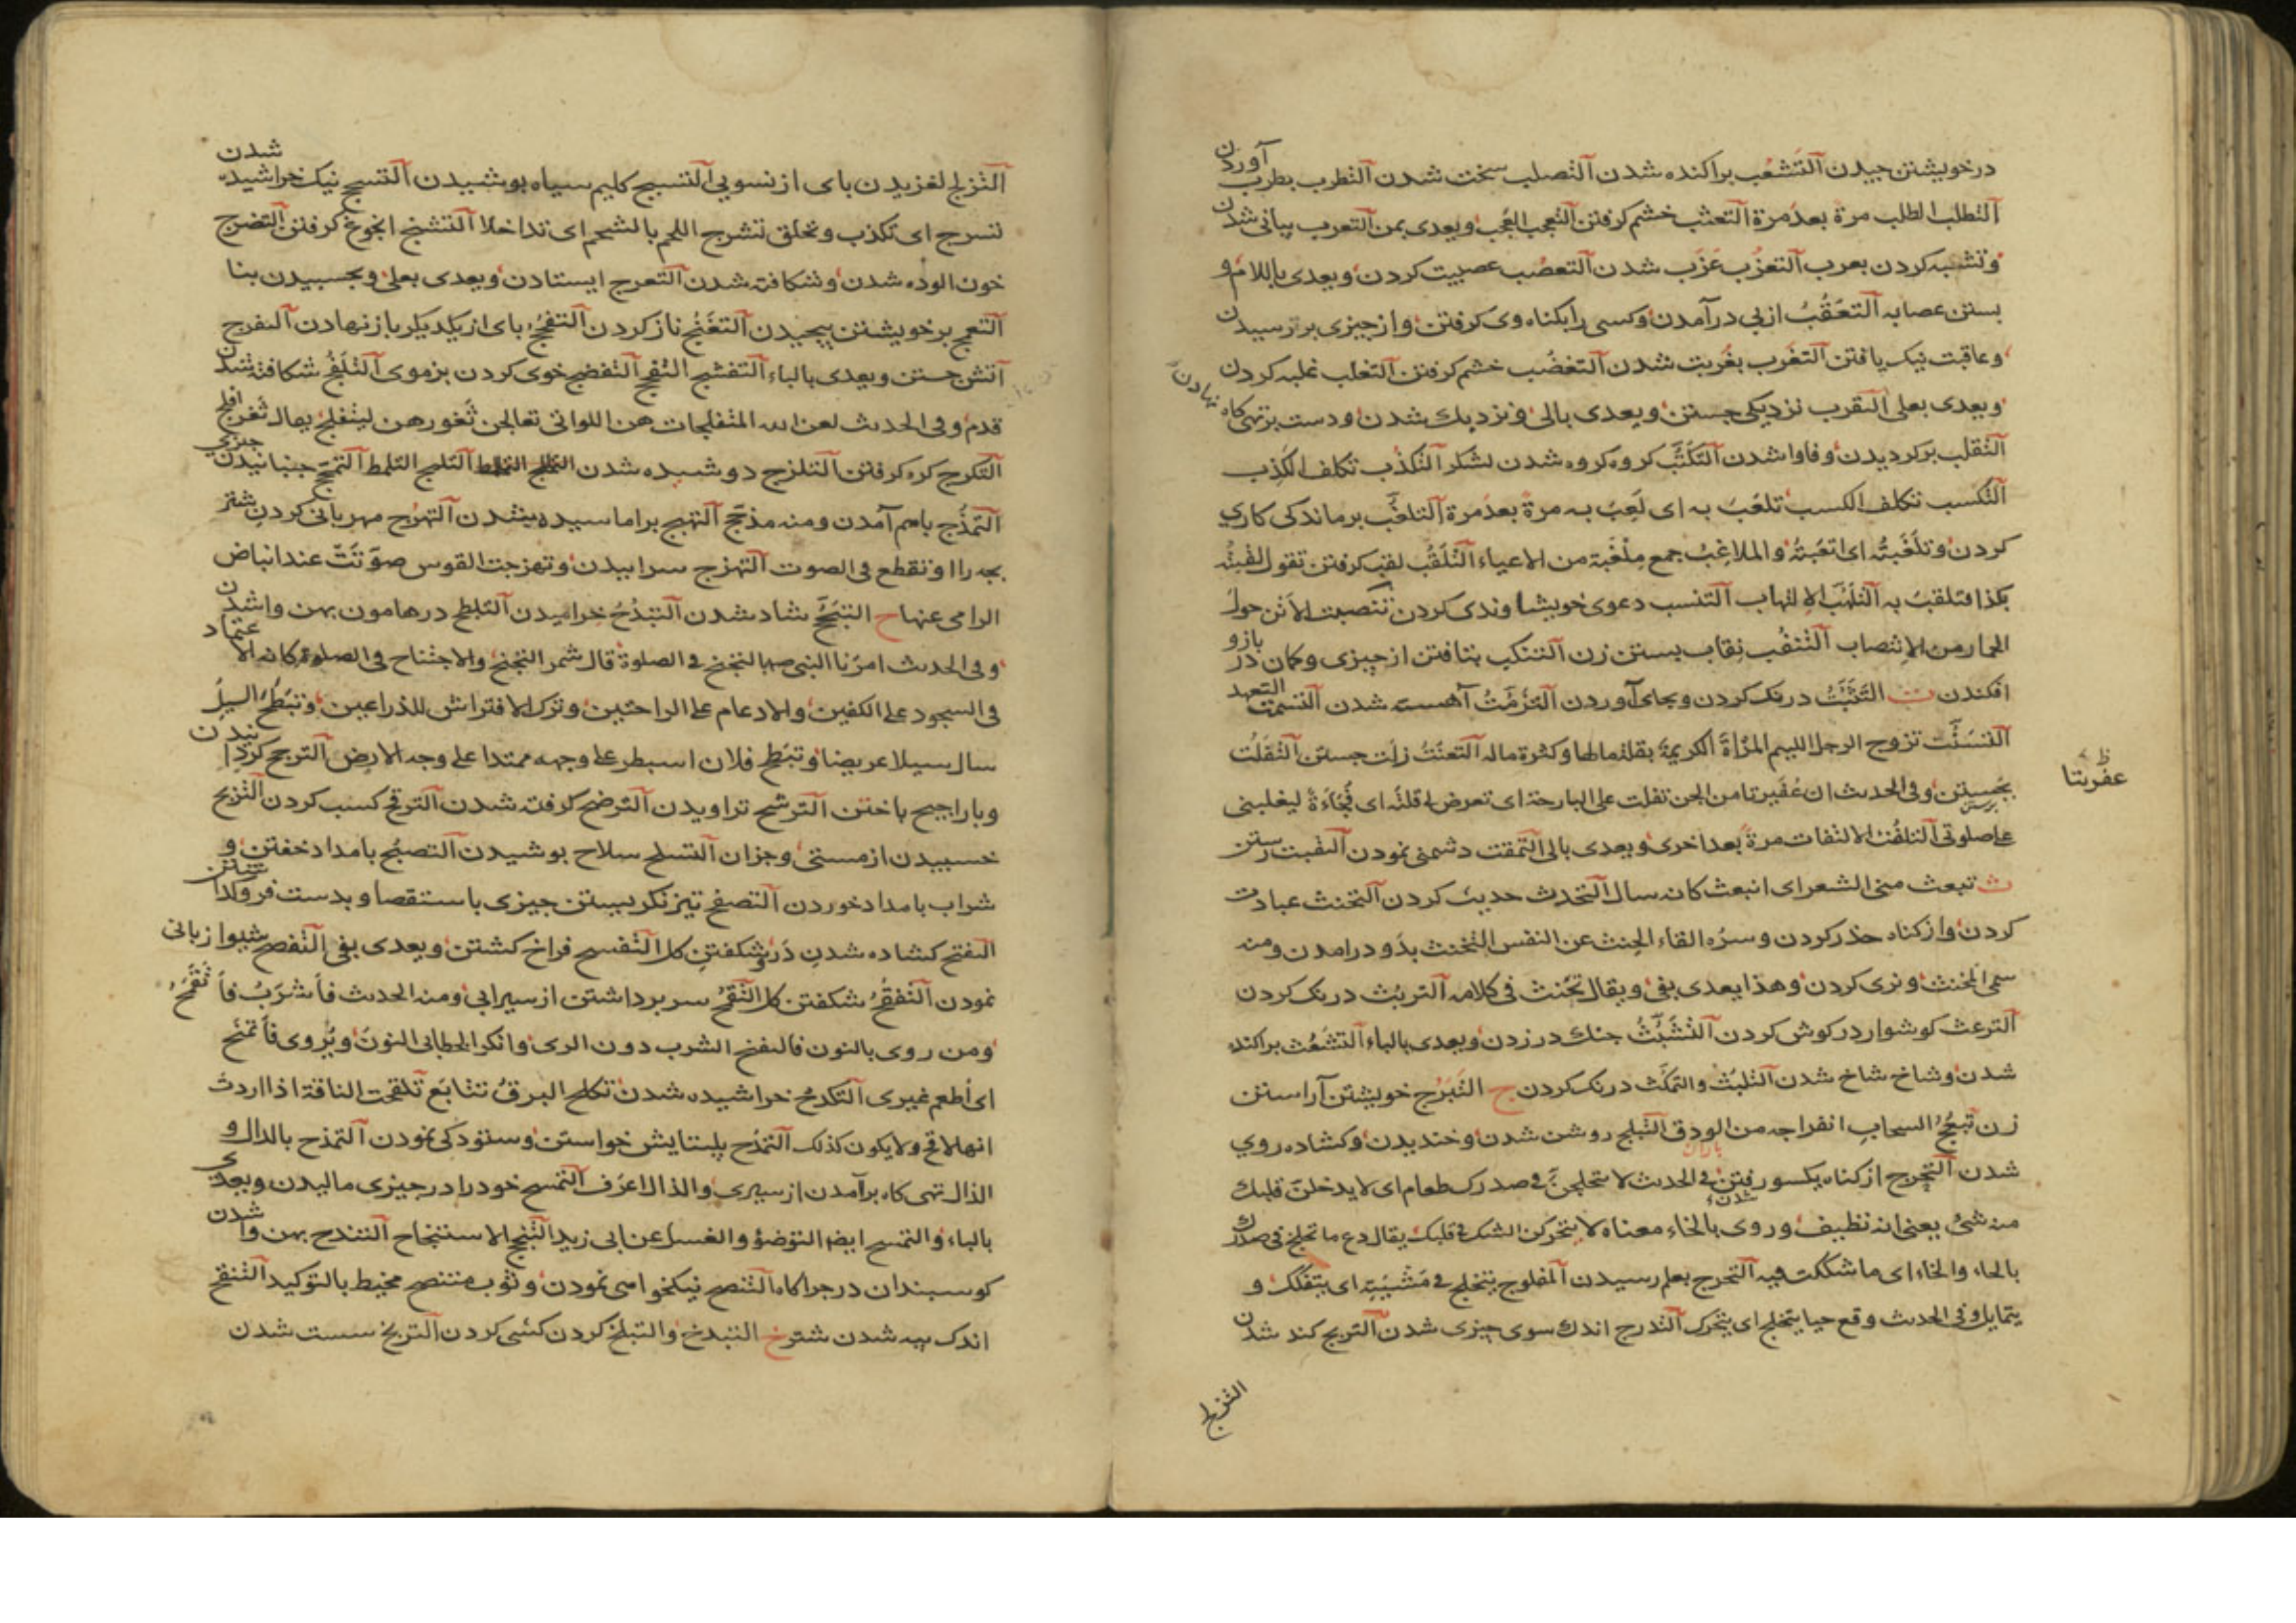 درخويشتن جيدن التشعب براكنده شدن التصلب سخت شدن التطرب بطرب آوردن
التطلب الطلب مرة بعد مرة التعتب خشم كرفتن التعجب العجب ويعدى بمن التعرب بيابانى شدن
وتشبه كردن بعرب التعزب عزب شدن التعصب عصبيت كردن ويعدى باللام و
بستن عصابه التعقب از پى درآمدن وكسى را بكناه وى كرفتن واز جيزى بر رسيدن
وعاقبت نيك يافتن التغرب بغربت شدن التغضب خشم كرفتن التغلب غلبه كردن
ويعدى بعلى التقرب نزديكى جستن ويعدى بالى ونزديك شدن ودست بر تهى كاه نهادن
التقلب بركرديدن وفاوا شدن التكتب كروه كروه شدن لشكر التكذب تكلف الكذب
التكسب تكلف الكسب تلعب به اى لعب به مرة بعد مرة التلغب برماندكى كارى
كردن وتلغبته اى اتعبته والملاغب جمع ملغبة من الاعياء التلقب لقب كرفتن تقول لقبته
بكذا فتلقب به التلهب الالتهاب التنسب دعوى خويشاوندى كردن تنصبت الاتن حول
الحمار من الانتصاب التنقب نقاب بستن زن التنكب بتافتن از چيزى وكمان در بازو
افكندن ت التثبت درنك كردن وبجاى آوردن التزمت آهسته شدن التسمت التعهد
التسنت تزوج الرجل اللئيم المرأة الكريمة بقلة مالها وكثرة ماله التعنت زلت جستن التفلت
بجستن وفى الحديث ان عفيرتا من الجن تفلت على البارحة اى تعرض لى فلتة اى فجاءة ليغلبنى
برستن
على صلوتى التلفت الالتفات مرة بعد اخرى ويعدى بالى التمقت دشمنى نمودن
عفريتا ظ
ث تبعث منى الشعر اى انبعث كانه سال التحدث حديث كردن التحنث عبادت
كردن واز كناه حذر كردن وسره القاء الحنث عن النفس التخنث بدو درامدن ومنه
سمى المخنث ونرى كردن وهذا يعدى بفى ويقال تخنث فى كلامه التربث درنك كردن
الترعث كوشوار در كوش كردن التشبث جنك در زدن ويعدى بالباء التشعث براكنده
شدن وشاخ شاخ شدن التلبث والتمكث درنك كردن ج التبرج خويشتن آراستن
زن تبعج السحاب انفراجه من الودق التبلج روشن شدن وخنديدن وكشاده روي
باران
شدن التحرج از كناه يكسو رفتن فى الحديث لا يتحلجن فى صدرك طعام اى لا يدخلن قلبك
شدن
منه شئ يعنى انه نظيف وروى بالخاء معناه لا يتحركن الشك فى قلبك يقال دع ما تحلج فى صدرك
بالحاء والخاء اى ما شككت فيه التخرج بعلم رسيدن المفلوج يتخلج فى مشيته اى يتفكك و
يتمايل وفى الحديث وقع حيا يتخلج اى يتحرك التدرج اندك سوى چيزى شدن التربج كند شدن
التزلج
التزلج لغزيدن باى از نسويى التسبج كليم سياه بوشيدن التسحج نيك خراشيده شدن
تسرج اى تكذب وتخلق تشرج اللحم بالشحم اى تداخلا التشنج انجوغ كرفتن التضرج
خون الوده شدن وشكافته شدن التعرج ايستادن ويعدى بعلى وبجسبيدن بنا
التعمج بر خويشتن پيچيدن التغنج ناز كردن التفحج باى از يكديكر باز نهادن التفرج
آتش جستن ويعدى بالباء التفشج التفحج التفضج خوى كردن بن موى التفلج شكافته شدن
قدم وفى الحديث لعن الله المتفلجات هن اللواتى تعالجن ثغورهن ليتفلج يقال ثغر افلج
التكرج كره كرفتن التلزج دوشيده شدن التلمج التلمظ التمعج جنبانيدن چيزى
التمذج باهم آمدن ومنه مذحج التهبج براماسيده شدن التهرج مهربانى كردن شتر
بجه را او تقطع فى الصوت التهزج سراييدن وتهزجت القوس صوتت عند انباض
الرامى عنها ح التبجح شاد شدن التبذح خراميدن التبلطح در هامون بهن واشدن
وفى الحديث امرنا النبى صم بالتجنح فى الصلوة قال شمر التجنح والاجتناح فى الصلوة كانه الاعتماد
فى السجود على الكفين والادعام على الراحتين وترك الافتراش للذراعين وتبطح السيل
سال سيلا عريضا وتبطح فلان اسبطر على وجهه ممتدا على وجه الارض الترجح كردانيدن
وباراجيح باختن الترشح تراويدن الترضح كرفته شدن الترقح كسب كردن الترنح
خسبيدن از مستى وجز ان التسلح سلاح بوشيدن التصبح بامداد خفتن و
شراب بامداد خوردن التصفح تيز نكريستن جيزى باستقصا وبدست فرو كذاشتن
التفتح كشاده شدن در وشكفتن كل التفسح فراخ كشتن ويعدى بفى التفصح شيوا زبانى
نمودن التفقح شكفتن كل التقمح سر برداشتن از سيرابى ومنه الحديث فاشرب فاتقمح
ومن روى بالنون فالتقنح الشرب دون الرى وانكر الخطابى النون ويروى فاتمنح
اى اطعم غيرى التكدح خراشيده شدن تكلح البرق تتابع تلقحت الناقة اذا اردت
انها لاقح ولا يكون كذلك التمدح بستايش خواستن وستودكى نمودن التمذح بالدال و
الذال تهى كاه برآمدن از سيرى والذال اعرف التمسح خود را در جيزى ماليدن ويعدى
بالباء والتمسح ايضا التوضؤ والغسل عن ابى زيد التنجح الاستنجاح التندح بهن وا شدن
كوسبندان در جراكاه التنصح نيكخواهى نمودن وثوب متنصح مخيط بالتوكيد التنقح
اندك پيه شدن شتر خ التبدخ والتبلخ كردن كشى كردن التربخ سست شدن